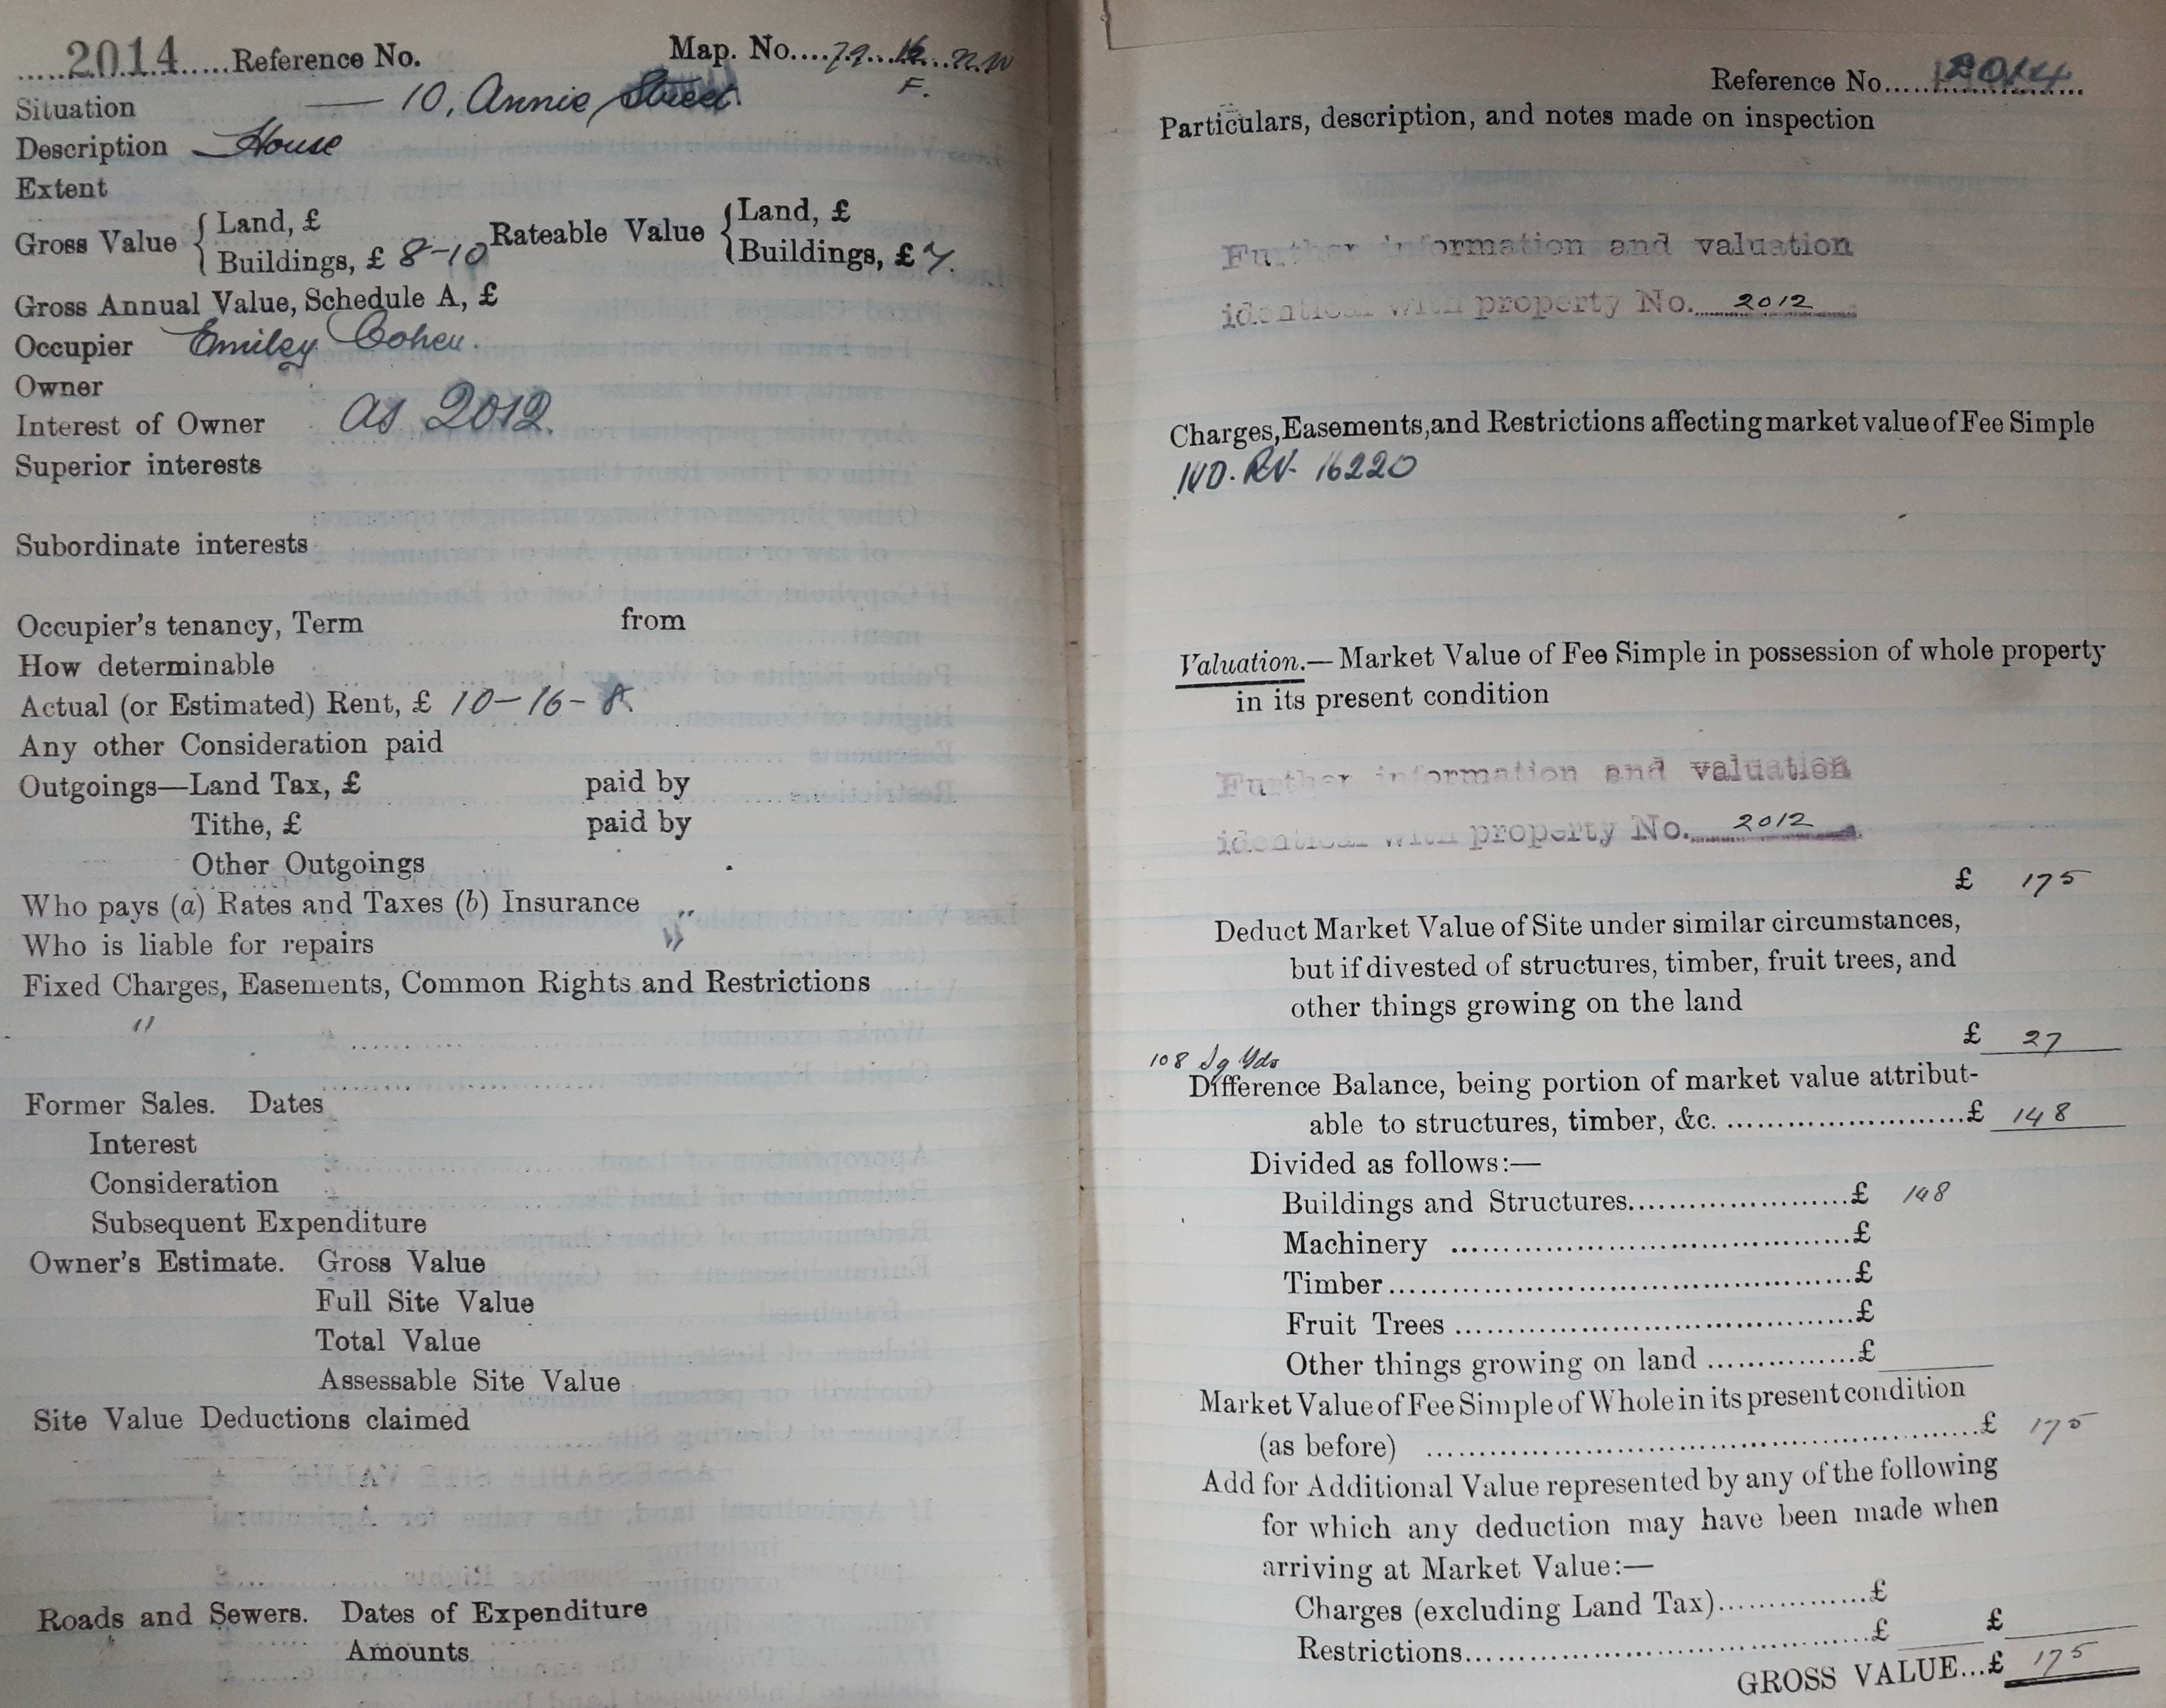 2014 Reference No. Map. No.
F.
Situation — 10, Annie Street
Description House
Extent
Gross Value { Land, £ Rateable Value { Land, £
Buildings, £ 8-10 Buildings, £ 7.
Gross Annual Value, Schedule A, £
Occupier Emiley Cohen.
Owner
Interest of Owner as 2012.
Superior interests
Subordinate interests
Occupier's tenancy, Term from
How determinable
Actual (or Estimated) Rent, £ 10-16-8.
Any other Consideration paid
Outgoings—Land Tax, £ paid by
Tithe, £ paid by
Other Outgoings
Who pays (a) Rates and Taxes (b) Insurance "
Who is liable for repairs "
Fixed Charges, Easements, Common Rights and Restrictions
"
Former Sales. Dates
Interest
Consideration
Subsequent Expenditure
Owner's Estimate. Gross Value
Full Site Value
Total Value
Assessable Site Value
Site Value Deductions claimed
Roads and Sewers. Dates of Expenditure
Amounts
Reference No. 2014
Particulars, description, and notes made on inspection
Further information and valuation
identical with property No. 2012
Charges, Easements, and Restrictions affecting market value of Fee Simple
16220
Valuation.—Market Value of Fee Simple in possession of whole property
in its present condition
Further information and valuation
identical with property No. 2012
£ 175
Deduct Market Value of Site under similar circumstances,
but if divested of structures, timber, fruit trees, and
other things growing on the land
£ 27
108 Sq Yds
Difference Balance, being portion of market value attribut-
able to structures, timber, &c. £ 148
Divided as follows:—
Buildings and Structures £ 148
Machinery £
Timber £
Fruit Trees £
Other things growing on land £
Market Value of Fee Simple of Whole in its present condition
(as before) £ 175
Add for Additional Value represented by any of the following
for which any deduction may have been made when
arriving at Market Value:—
Charges (excluding Land Tax) £
Restrictions £ £
GROSS VALUE...£ 175